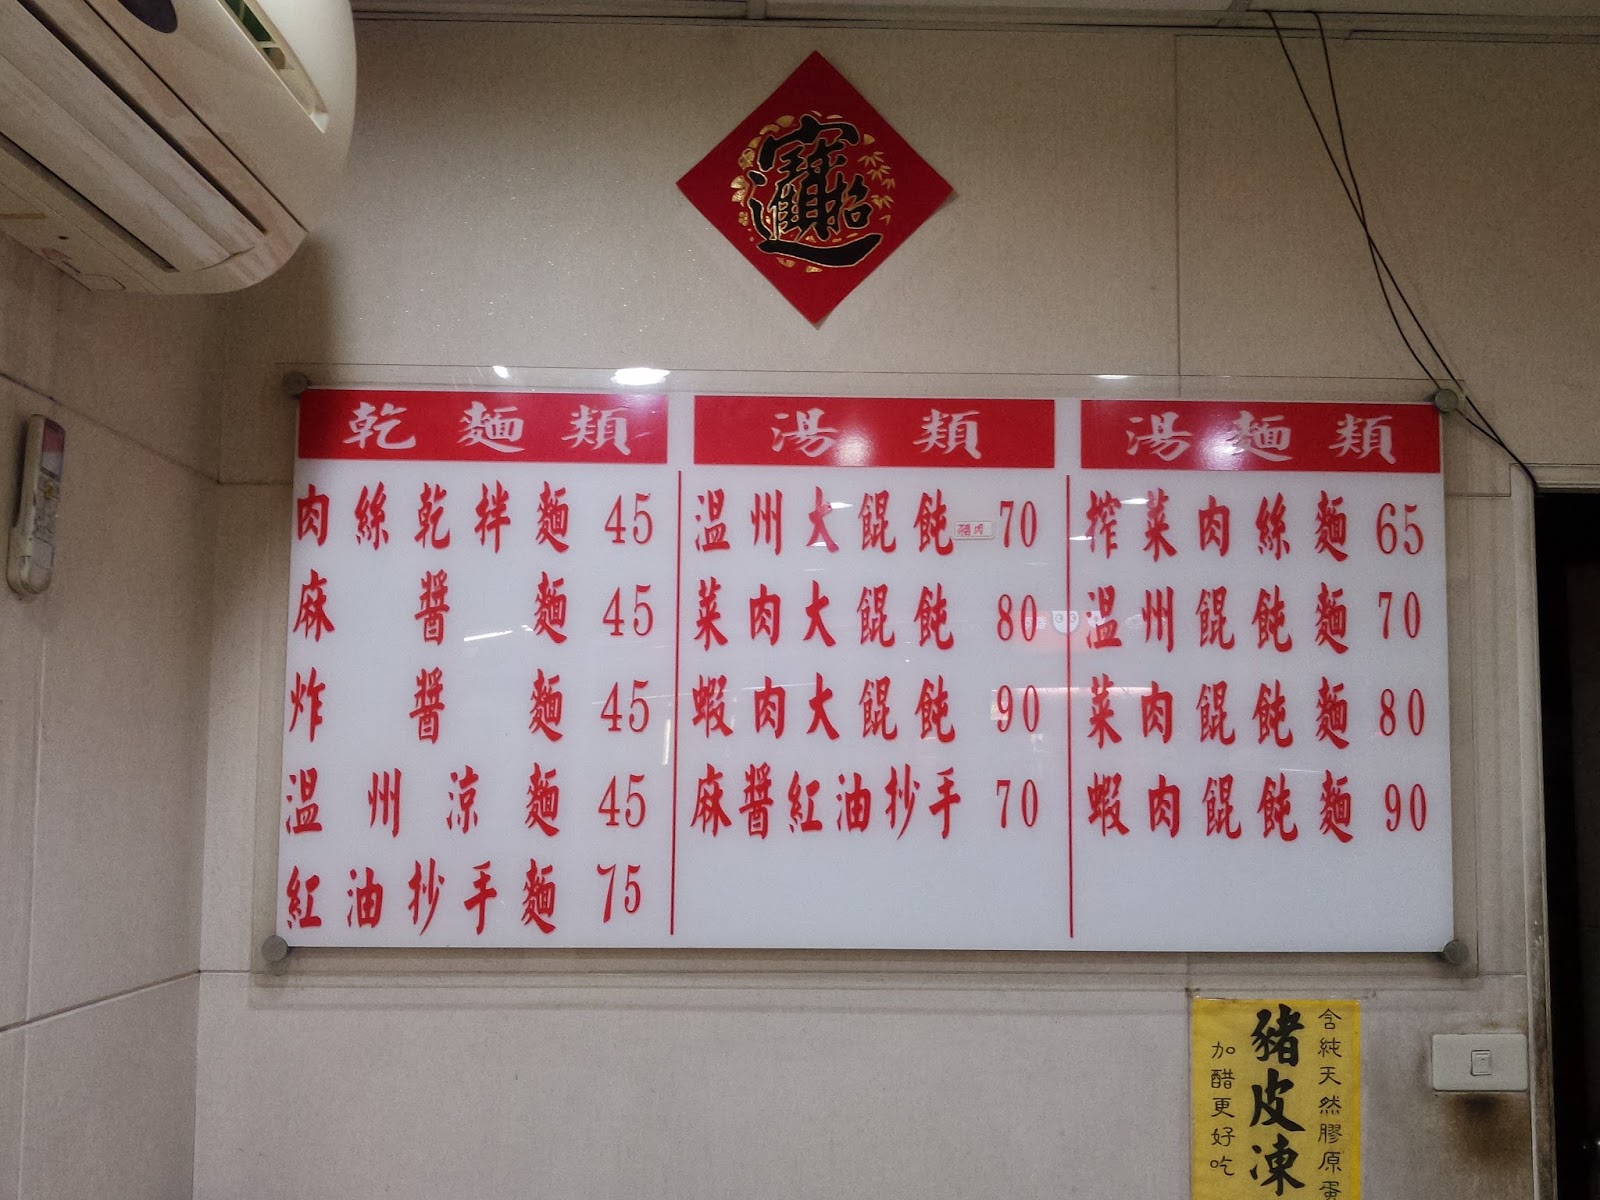 招財進寶
乾麵類
肉絲乾拌麵 45
麻醬麵 45
炸醬麵 45
温州涼麵 45
紅油抄手麵 75
湯類
温州大餛飩 豬肉 70
菜肉大餛飩 80
蝦肉大餛飩 90
麻醬紅油抄手 70
湯麵類
榨菜肉絲麵 65
温州餛飩麵 70
菜肉餛飩麵 80
蝦肉餛飩麵 90
含純天然膠原蛋
豬皮凍
加醋更好吃